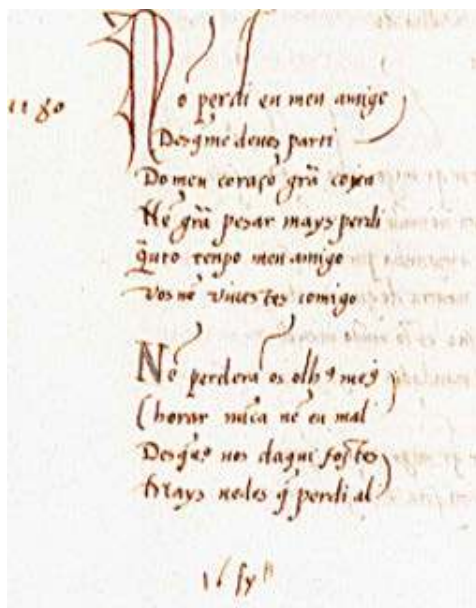 1180
No perdi eu meu amigo
Desq̃me deuos parti
Do meu coraçõ grã coyta
Nẽ grã pesar mays perdi
q̃nto tenpo meu amigo
vos nẽ viuestes comigo
Nẽ perderã os olhꝯ meꝯ
Chorar nũca nẽ eu mal
Desq̃ uos daqui fostes
Mays uedes q̃ perdi al